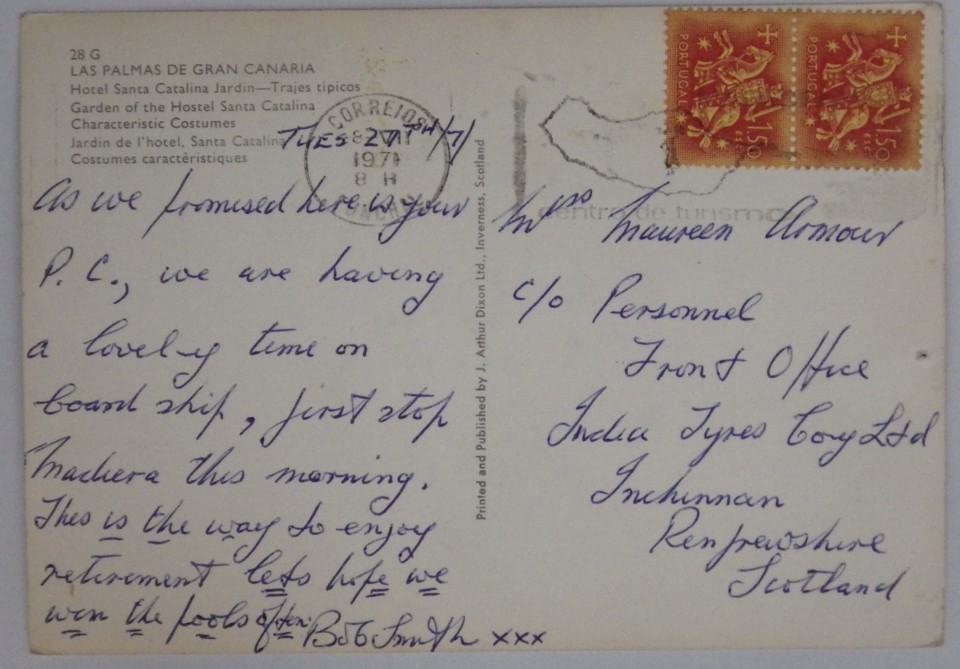 28 G
LAS PALMAS DE GRAN CANARIA
Hotel Santa Catalina Jardin—Trajes tipicos
Garden of the Hostel Santa Catalina
Characteristic Costumes
Jardin de l'hotel, Santa Catalina
Costumes caractèristiques
TUES 27TH/71
As we promised here is your
P. C., we are having
a lovely time on
board ship, first stop
Madiera this morning.
This is the way to enjoy
retirement lets hope we
win the pools often.
Bob Smith xxx
CORREIOS
1971
8 H
FUNCHAL
Printed and Published by J. Arthur Dixon Ltd., Inverness, Scotland
centro de turismo
PORTUGAL
1$50
PORTUGAL
1$50
Mrs Maureen Armour
c/o Personnel
Front Office
India Tyres Coy Ltd
Inchinnan
Renfrewshire
Scotland